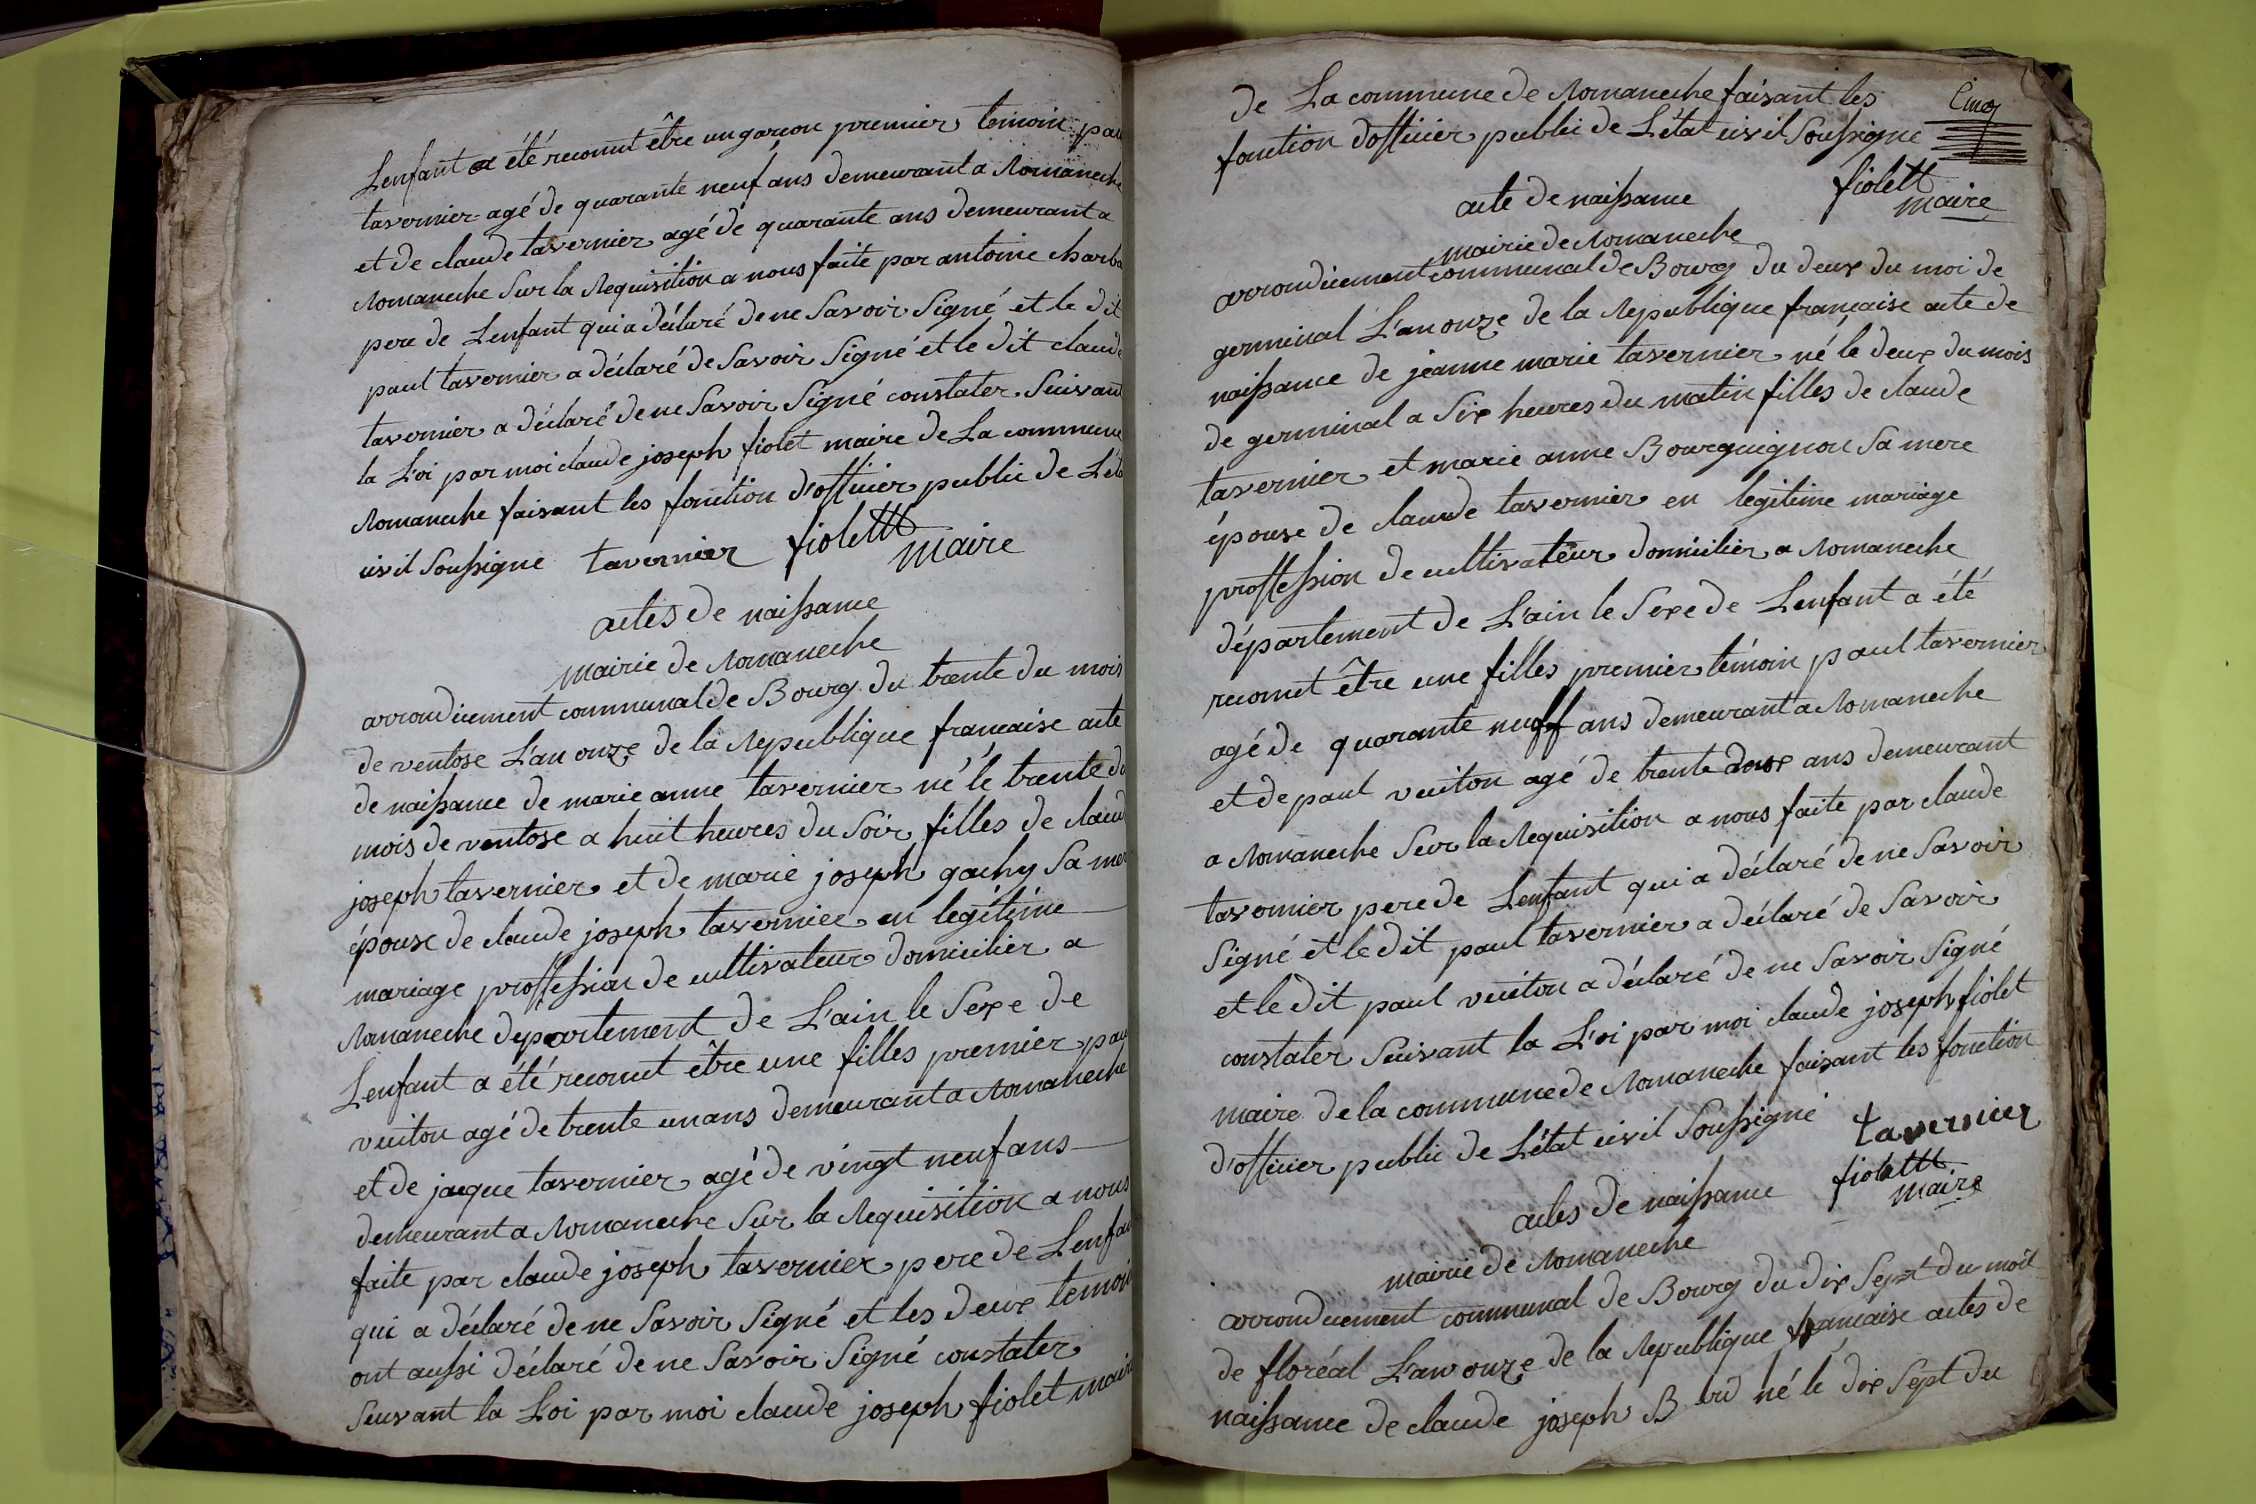 Lenfant a été reconnut être un garçon premier temoin pau
tavernier agé de quarante neuf ans demeurant a Romaneche
et de claude tavernier agé de quarante ans demeurant a
Romaneche Sur la Requisition a nous faite par antoine charba
pere de Lenfant qui a déclaré de ne Savoir Signé et le dit
paul tavernier a déclaré de Savoir Signé et le dit claude
tavernier a déclaré de ne Savoir Signé constater Suivant
la Loi par moi claude joseph fiolet maire de La commune
Romaneche faisant les fonction d'officier public de L'éta
civil Soussigne tavernier fiolett
maire
actes de naissance
mairie de Romaneche
arrondicement communal de Bourg du trente du mois
de ventose L'an onze de la Republique francaise acte
de naissance de marie anne tavernier né le trente du
mois de ventose a huit heures du Soir filles de claud
joseph tavernier et de marie joseph gachy Sa mer
épouse de claude joseph tavernier en legitime
mariage proffession de cultivateur domicilier a
Romaneche departement de L'ain le Sexe de
Lenfant a été reconut être une filles premier pau
vuiton agé de trente un ans demeurant a Romaneche
et de jacque tavernier agé de vingt neuf ans
demeurant a Romaneche Sur la Requisition a nous
faite par claude joseph tavernier pere de Lenfan
qui a déclaré de ne Savoir Signé et les deux temoin
ont aussi déclaré de ne Savoir Signé constater
Suivant la Loi par moi claude joseph fiolet maire
Cinq
de La commune de Romaneche faisant les
fonction d'officier public de L'état civil Soussigne
fiolett
maire
acte de naissance
mairie de Romaneche
arrondicement communal de Bourg du deux du moi de
germinal L'an onze de la Republique francaise acte de
naissance de jeanne marie tavernier né le deux du mois
de germinal a Six heures du matin filles de claude
tavernier et marie anne Bourguignon Sa mere
épouse de claude tavernier en legitime mariage
proffession de cultivateur domicilier a Romaneche
département de L'ain le Sexe de Lenfant a été
reconut être une filles premier témoin paul tavernier
agé de quarante neuff ans demeurant a Romaneche
et de paul vuiton agé de trente deux ans demeurant
a Romaneche Sur la Requisition a nous faite par claude
tavernier pere de Lenfant qui a déclaré de ne Savoir
Signé et le dit paul tavernier a déclaré de Savoir
et le dit paul vuiton a déclaré de ne Savoir Signé
constater Suivant la Loi par moi claude joseph fiolet
maire de la commune de Romaneche faisant les fonction
d'officier public de L'état civil Soussigné tavernier
fiolett
maire
actes de naissance
mairie de Romaneche
arrondicement communal de Bourg du dix Sept du moi
de floréal L'an onze de la Republique francaise actes de
naissance de claude joseph né le dix Sept du